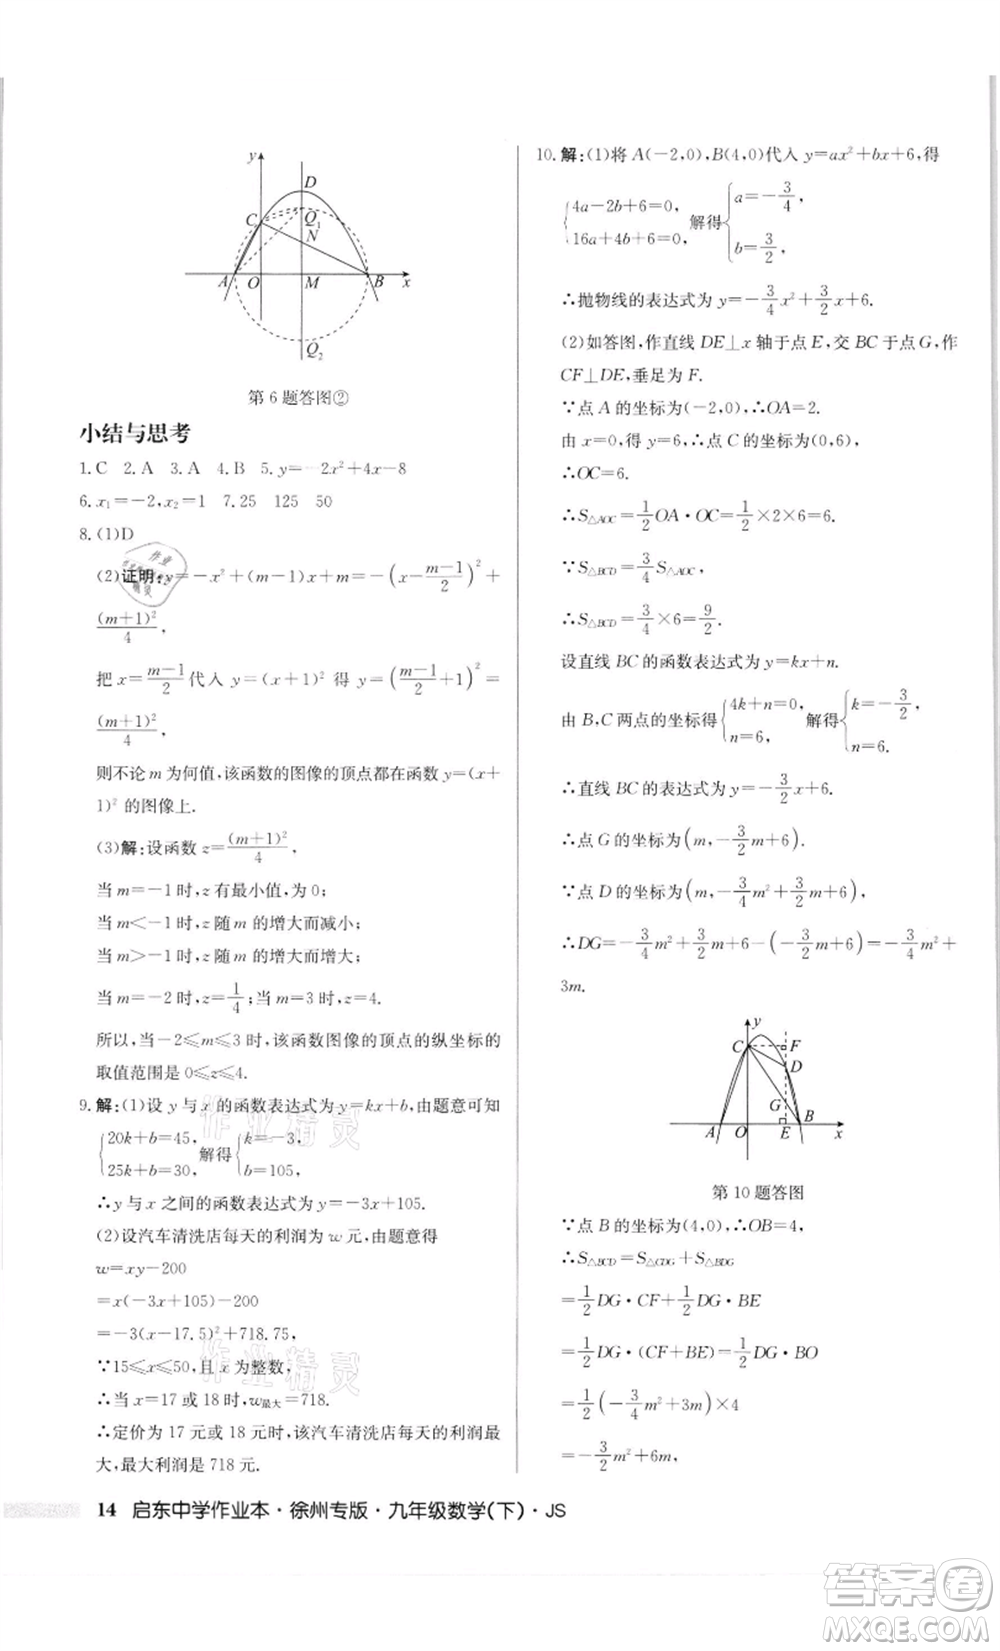 y
D
C
Q₁
N
A
O
M
B
x
Q₂
第6题答图②
小结与思考
1.C 2.A 3.A 4.B 5.y=-2x²+4x-8
6.x₁=-2,x₂=1 7.25 125 50
8.(1)D
(2)证明:y=-x²+(m-1)x+m=-(x-\frac{m-1}{2})²+
\frac{(m+1)²}{4},
把 x=\frac{m-1}{2}代入 y=(x+1)² 得 y=(\frac{m-1}{2}+1)²=
\frac{(m+1)²}{4},
则不论 m 为何值,该函数的图像的顶点都在函数 y=(x+
1)² 的图像上.
(3)解:设函数 z=\frac{(m+1)²}{4},
当 m=-1 时,z 有最小值,为 0;
当 m<-1 时,z 随 m 的增大而减小;
当 m>-1 时,z 随 m 的增大而增大.
当 m=-2 时,z=\frac{1}{4};当 m=3 时,z=4.
所以,当-2≤m≤3 时,该函数图像的顶点的纵坐标的
取值范围是 0≤z≤4.
9.解:(1)设 y 与 x 的函数表达式为 y=kx+b,由题意可知
{20k+b=45, 25k+b=30, 解得{k=-3, b=105.
∴y 与 x 之间的函数表达式为 y=-3x+105.
(2)设汽车清洗店每天的利润为 w 元,由题意得
w=xy-200
=x(-3x+105)-200
=-3(x-17.5)²+718.75.
∵15≤x≤50,且 x 为整数,
∴当 x=17 或 18 时,w最大=718.
∴定价为 17 元或 18 元时,该汽车清洗店每天的利润最
大,最大利润是 718 元.
10.解:(1)将 A(-2,0),B(4,0)代入 y=ax²+bx+6,得
{4a-2b+6=0, 16a+4b+6=0, 解得{a=-\frac{3}{4}, b=\frac{3}{2},
∴抛物线的表达式为 y=-\frac{3}{4}x²+\frac{3}{2}x+6.
(2)如答图,作直线 DE⊥x 轴于点 E,交 BC 于点 G,作
CF⊥DE,垂足为 F.
∵点 A 的坐标为(-2,0),∴OA=2.
由 x=0,得 y=6,∴点 C 的坐标为(0,6),
∴OC=6.
∴S△AOC=\frac{1}{2}OA·OC=\frac{1}{2}×2×6=6.
∵S△BCD=\frac{3}{4}S△AOC,
∴S△BCD=\frac{3}{4}×6=\frac{9}{2}.
设直线 BC 的函数表达式为 y=kx+n.
由 B,C 两点的坐标得{4k+n=0, n=6, 解得{k=-\frac{3}{2}, n=6.
∴直线 BC 的表达式为 y=-\frac{3}{2}x+6.
∴点 G 的坐标为(m,-\frac{3}{2}m+6).
∵点 D 的坐标为(m,-\frac{3}{4}m²+\frac{3}{2}m+6),
∴DG=-\frac{3}{4}m²+\frac{3}{2}m+6-(-\frac{3}{2}m+6)=-\frac{3}{4}m²+
3m.
y
C
F
D
G
A
O
E
B
x
第 10 题答图
∵点 B 的坐标为(4,0),∴OB=4,
∴S△BCD=S△CDG+S△BDG
=\frac{1}{2}DG·CF+\frac{1}{2}DG·BE
=\frac{1}{2}DG·(CF+BE)=\frac{1}{2}DG·BO
=\frac{1}{2}(-\frac{3}{4}m²+3m)×4
=-\frac{3}{2}m²+6m.
作业精灵
作业精灵
14 启东中学作业本·徐州专版·九年级数学(下)·JS
答案圈
MXQE.COM